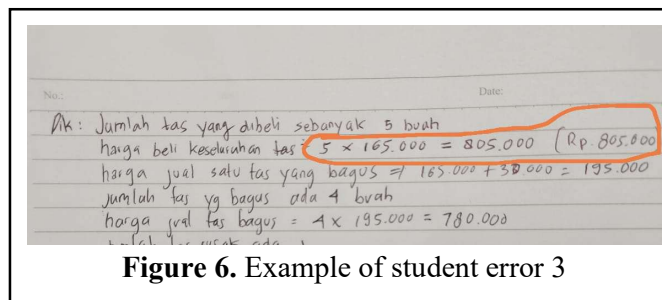 No.: Date:
Dik: Jumlah tas yang dibeli sebanyak 5 buah
harga beli keseluruhan tas = 5 x 165.000 = 805.000 (Rp. 805.000
harga jual satu tas yang bagus = 165.000 + 30.000 = 195.000
jumlah tas yg bagus ada 4 buah
harga jual tas bagus = 4 x 195.000 = 780.000
Figure 6. Example of student error 3